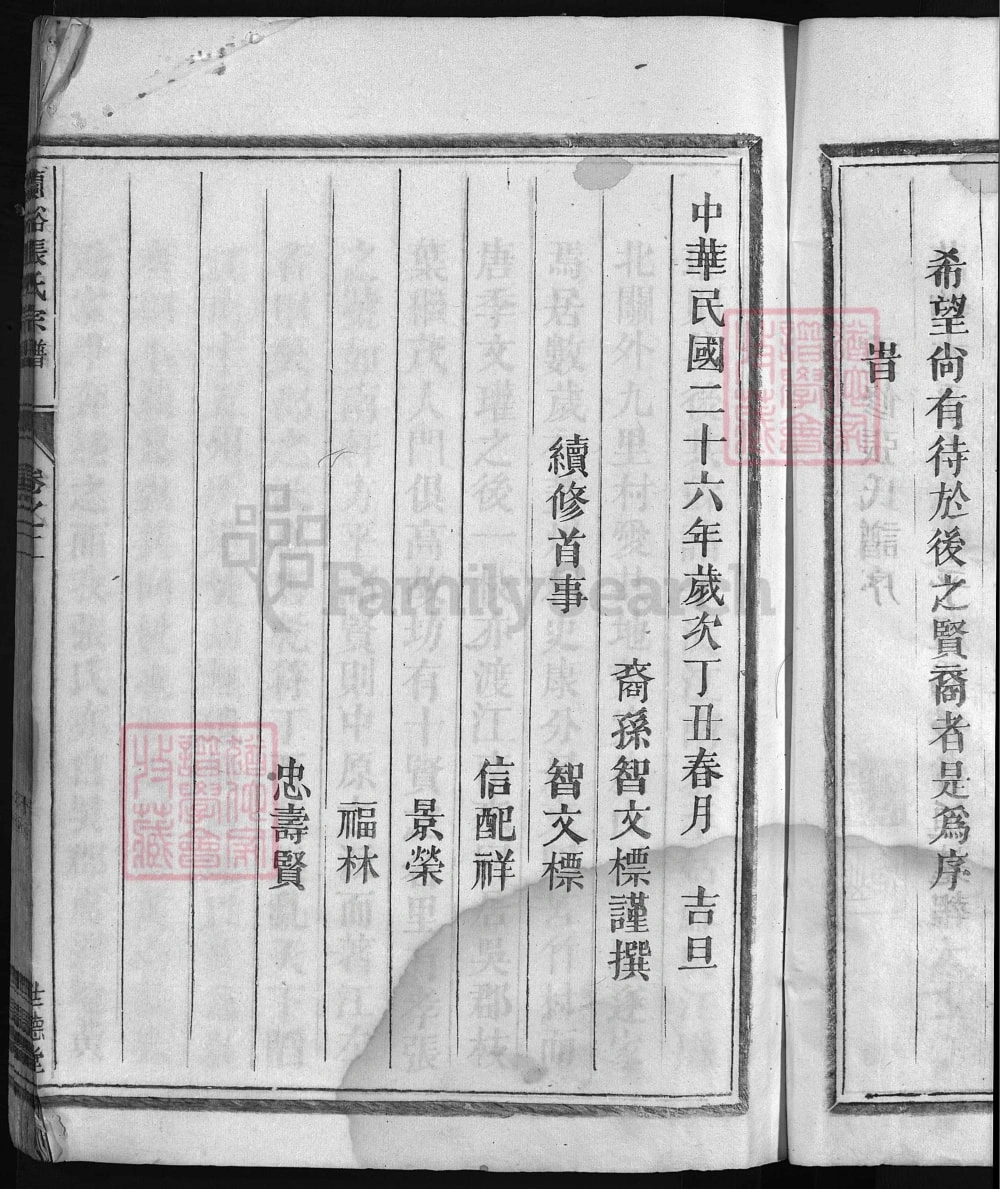 希望尙有待於後之賢裔者是爲序
旹
中華民國二十六年歲次丁丑春月 吉旦
裔孫智文標謹撰
續修首事 智文標
信配祥
景榮
福林
忠壽賢
張氏宗譜
卷之
世德堂
FamilySearch